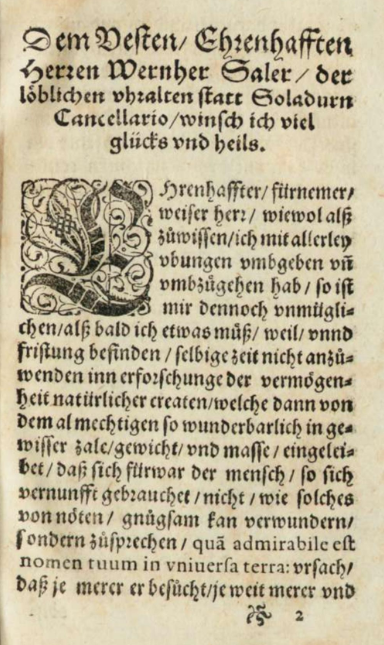 Dem Vesten/ Ehrenhafften
Herren Wernher Saler/ der
löblichen vhralten statt Soladurn
Cancellario/winsch ich viel
glücks vnd heils.
EHrenhaffter/ fürnemer/
weiser herr/ wiewol alß
zůwissen/ich mit allerley
vbungen vmbgeben vñ
vmbzůgehen hab/ so ist
mir dennoch vnmügli-
chen/alß bald ich etwas můß/ weil/ vnnd
fristung befinden/ selbige zeit nicht anzů-
wenden inn erforschunge der vermögen-
heit natürlicher createn/welche dann von
dem almechtigen so wunderbarlich in ge-
wisser zale/gewicht/ vnd masse/ eingelei-
bet/ daß sich fürwar der mensch/ so sich
vernunfft gebrauchet/ nicht/ wie solches
von nöten/ gnůgsam kan verwundern/
sondern zůsprechen/ quã admirabile est
nomen tuum in vniuersa terra: vrsach/
daß je merer er besücht/je weit merer vnd
2